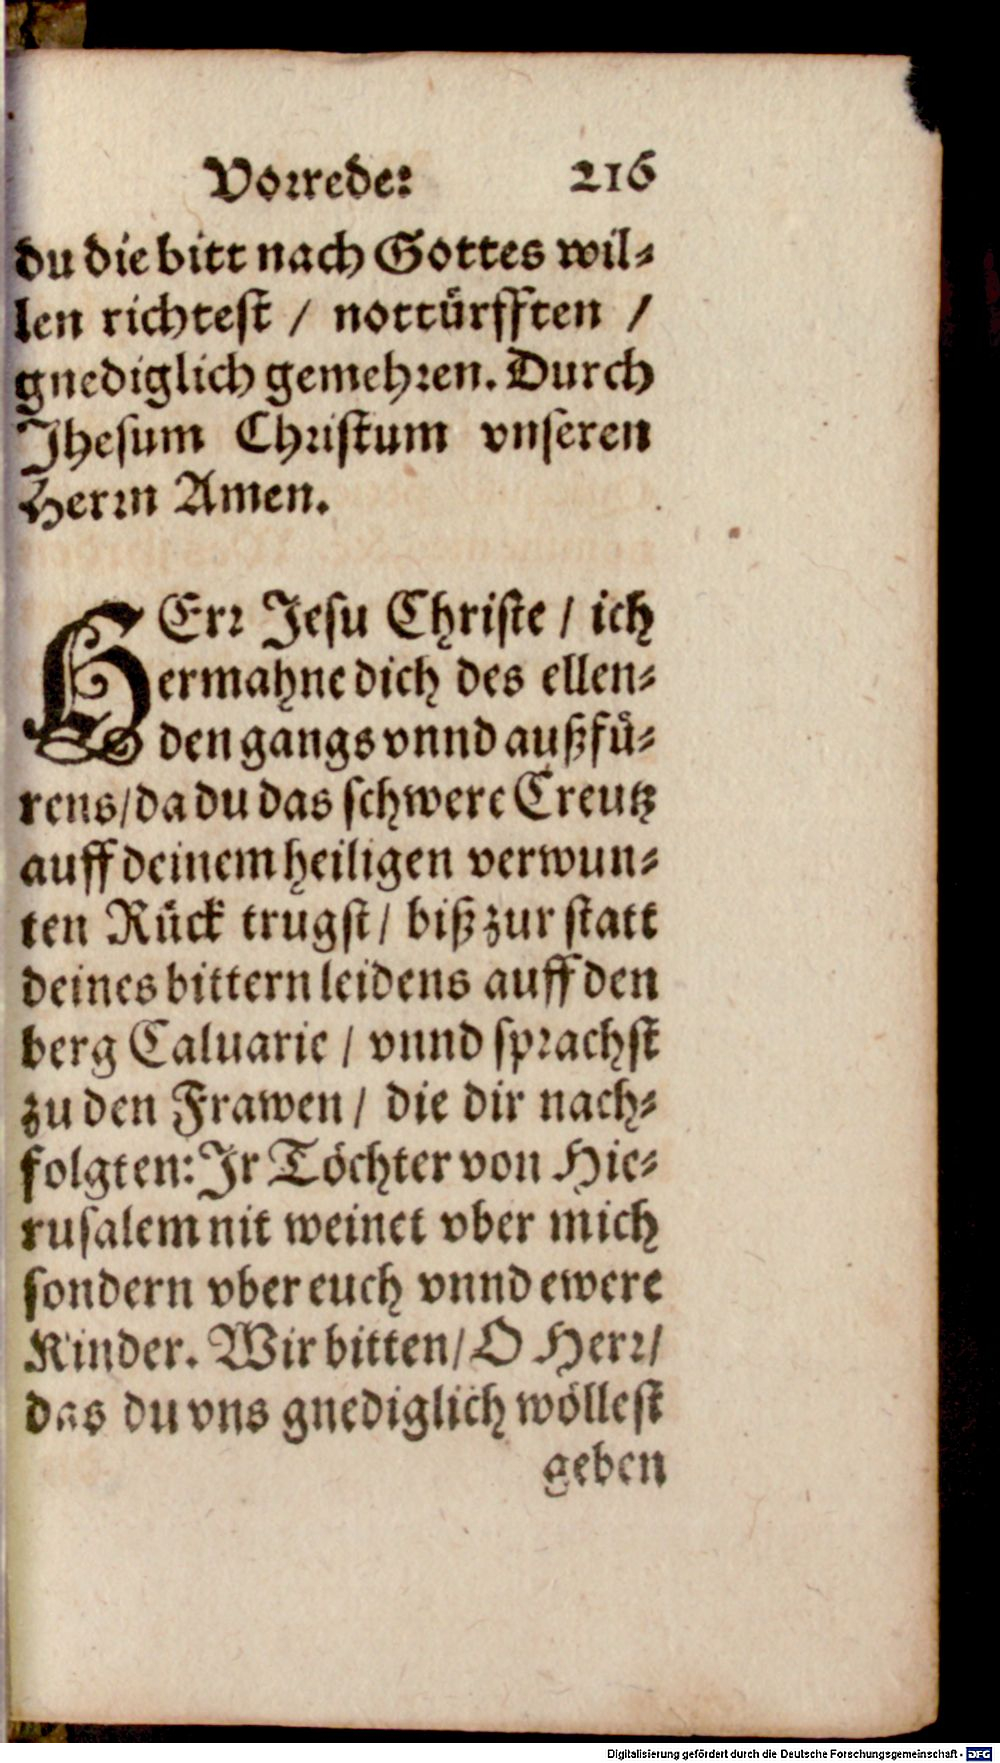 Vorrede: 216
du die bitt nach Gottes wil⸗
len richtest / nottürfften /
gnediglich gemehren. Durch
Jhesum Christum vnseren
Herrn Amen.
HErr Jesu Christe / ich
ermahne dich des ellen⸗
den gangs vnnd außfü⸗
rens / da du das schwere Creutz
auff deinem heiligen verwun⸗
ten Rück trugst / biß zur statt
deines bittern leidens auff den
berg Caluarie / vnnd sprachst
zu den Frawen / die dir nach⸗
folgten: Jr Töchter von Hie⸗
rusalem nit weinet vber mich
sondern vber euch vnnd ewere
Kinder. Wir bitten / O Herr /
das du vns gnediglich wöllest
geben
Digitalisierung gefördert durch die Deutsche Forschungsgemeinschaft - DFG